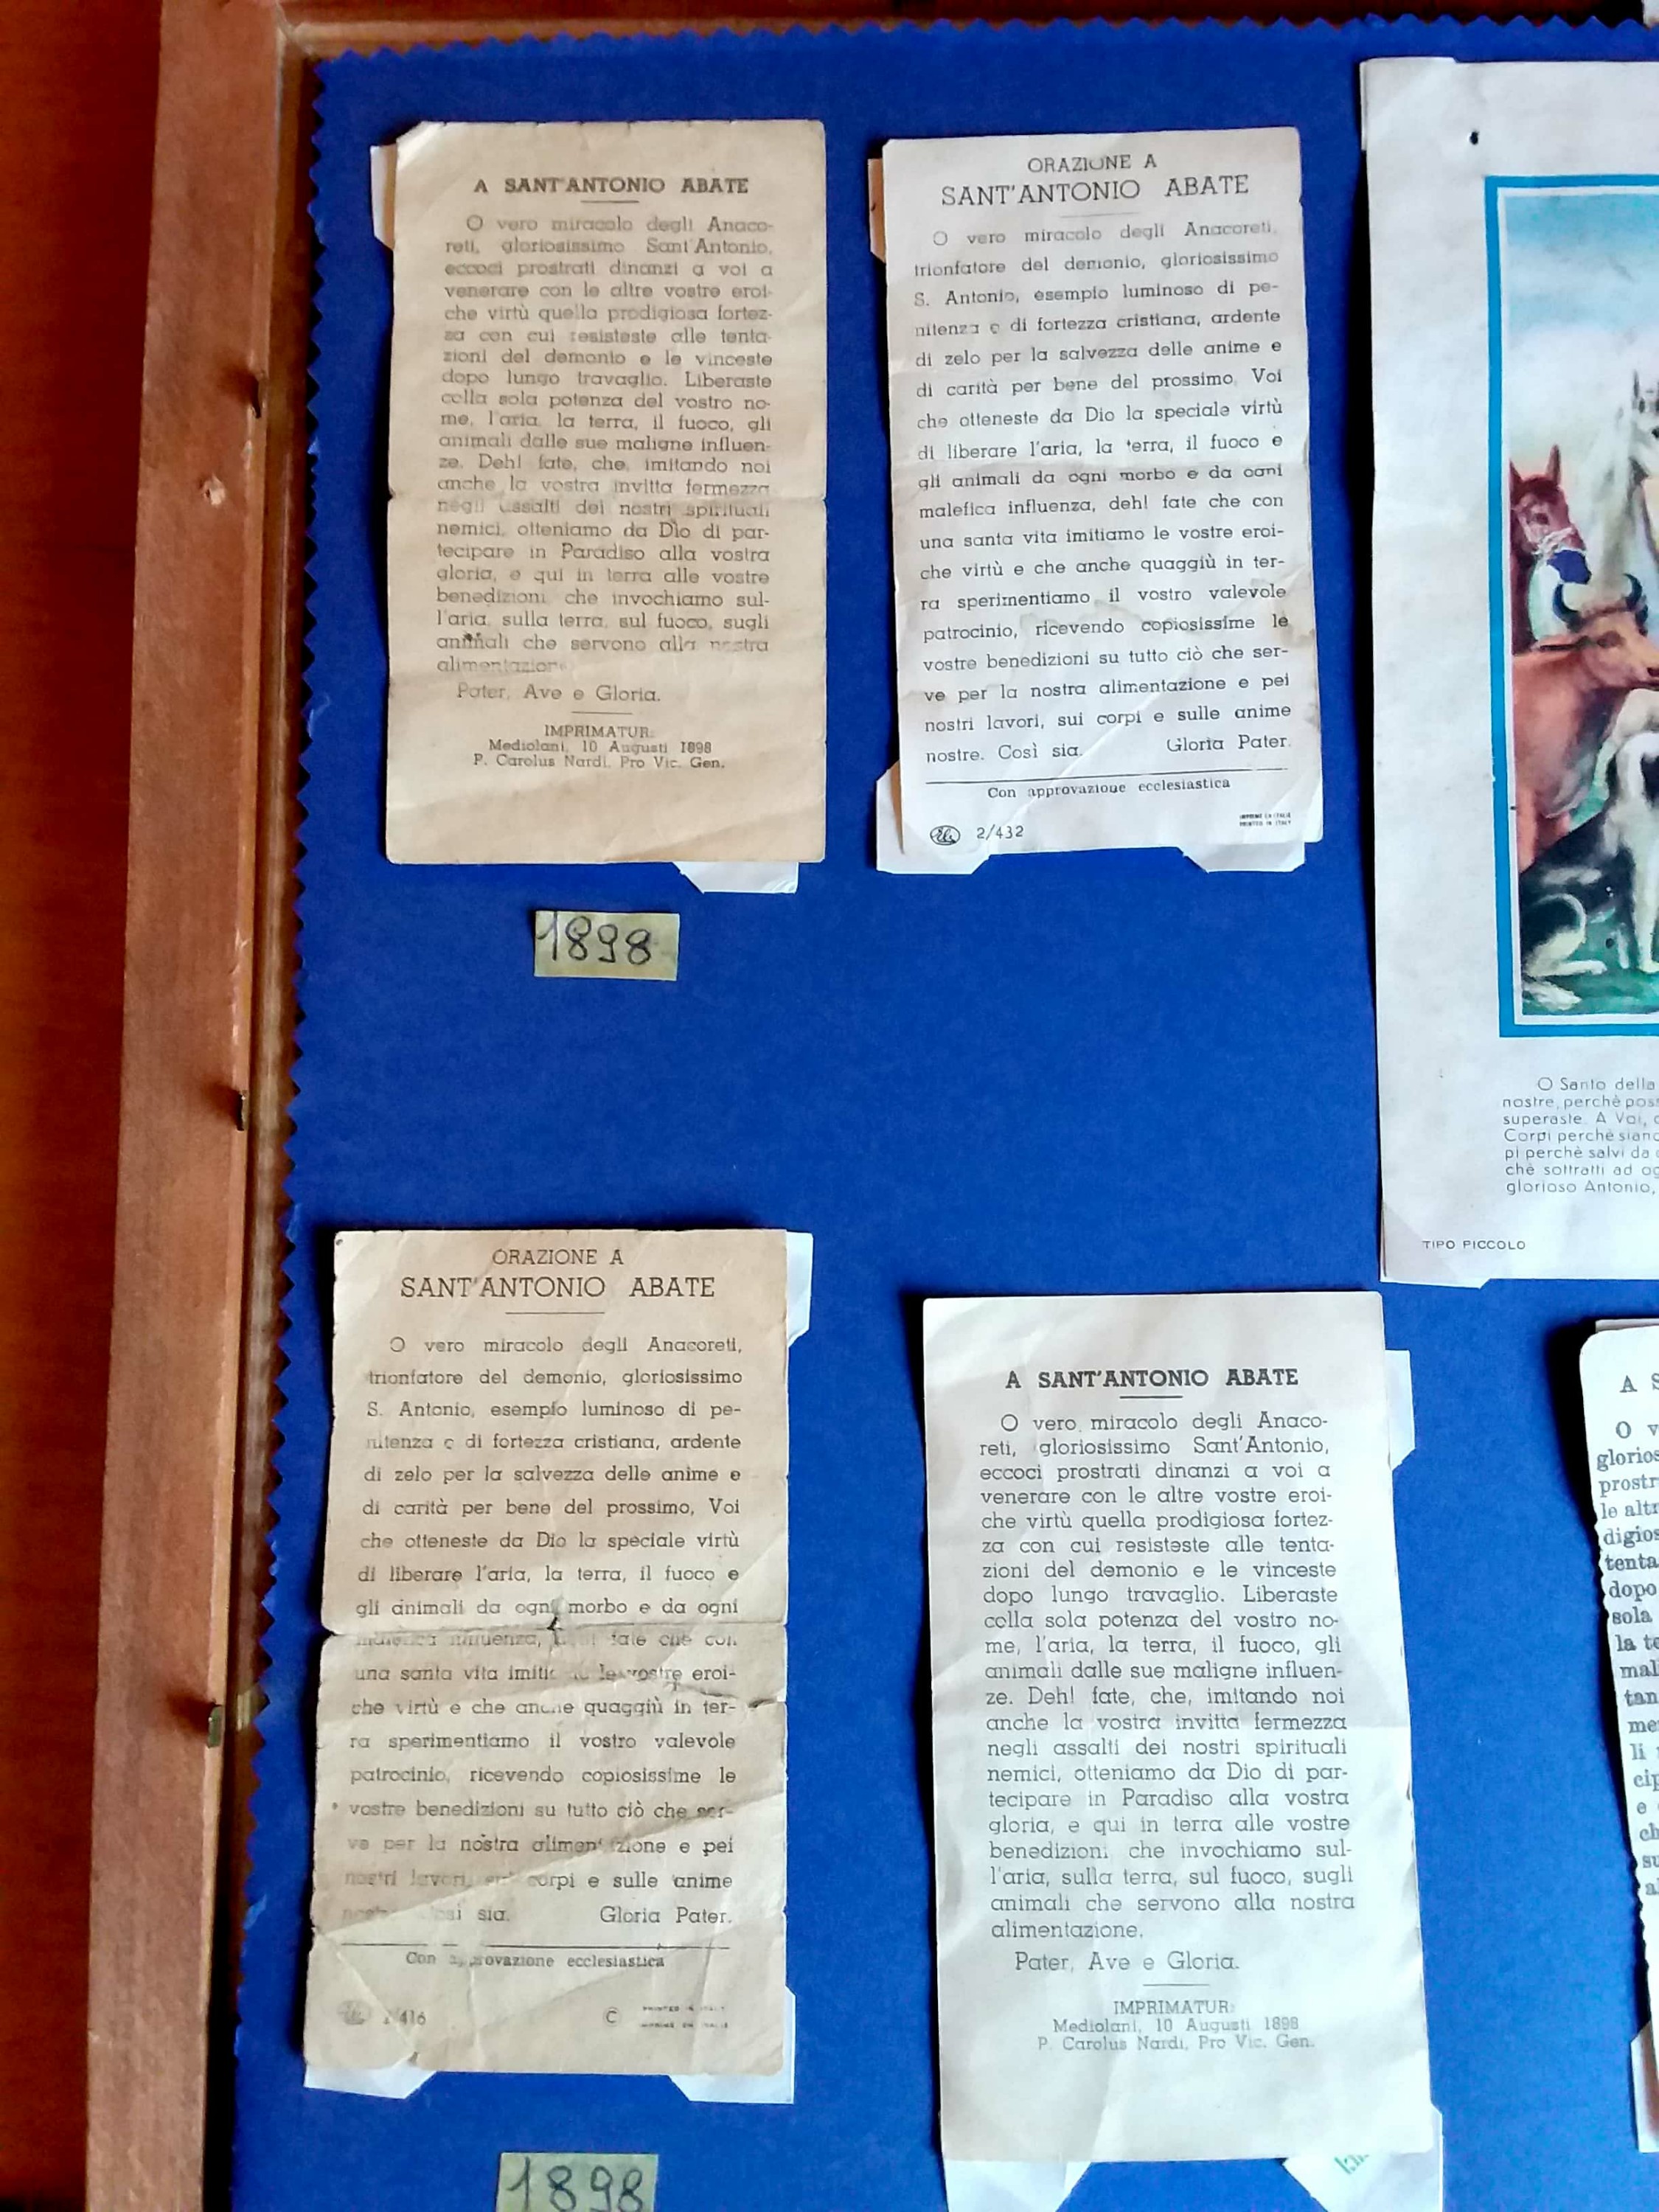 A SANT'ANTONIO ABATE
O vero miracolo degli Anaco-
reti, gloriosissimo Sant'Antonio,
eccoci prostrati dinanzi a voi a
venerare con le altre vostre eroi-
che virtù quella prodigiosa fortez-
za con cui resisteste alle tenta-
zioni del demonio e le vinceste
dopo lungo travaglio. Liberaste
colla sola potenza del vostro no-
me, l'aria, la terra, il fuoco, gli
animali dalle sue maligne influen-
ze. Deh! fate, che, imitando noi
anche la vostra invitta fermezza
negli assalti dei nostri spirituali
nemici, otteniamo da Dio di par-
tecipare in Paradiso alla vostra
gloria, e qui in terra alle vostre
benedizioni che invochiamo sul-
l'aria, sulla terra, sul fuoco, sugli
animali che servono alla nostra
alimentazione
Pater, Ave e Gloria.
IMPRIMATUR:
Mediolani, 10 Augusti 1898
P. Carolus Nardi, Pro Vic. Gen.
1898
ORAZIONE A
SANT'ANTONIO ABATE
O vero miracolo degli Anacoreti,
trionfatore del demonio, gloriosissimo
S. Antonio, esempio luminoso di pe-
nitenza e di fortezza cristiana, ardente
di zelo per la salvezza delle anime e
di carità per bene del prossimo, Voi
che otteneste da Dio la speciale virtù
di liberare l'aria, la terra, il fuoco e
gli animali da ogni morbo e da ogni
malefica influenza, deh! fate che con
una santa vita imitiamo le vostre eroi-
che virtù e che anche quaggiù in ter-
ra sperimentiamo il vostro valevole
patrocinio, ricevendo copiosissime le
vostre benedizioni su tutto ciò che ser-
ve per la nostra alimentazione e pei
nostri lavori, sui corpi e sulle anime
nostre. Così sia. Gloria Pater.
Con approvazione ecclesiastica
2/432
IMPRIMÉ EN ITALIE
PRINTED IN ITALY
O Santo della
nostre, perchè poss
superaste. A Voi,
Corpi perchè siano
pi perchè salvi da
chè sottratti ad og
glorioso Antonio,
TIPO PICCOLO
ORAZIONE A
SANT'ANTONIO ABATE
O vero miracolo degli Anacoreti,
trionfatore del demonio, gloriosissimo
S. Antonio, esempio luminoso di pe-
nitenza e di fortezza cristiana, ardente
di zelo per la salvezza delle anime e
di carità per bene del prossimo, Voi
che otteneste da Dio la speciale virtù
di liberare l'aria, la terra, il fuoco e
gli animali da ogni morbo e da ogni
influenza, fate che con
una santa vita le vostre eroi-
che virtù e che anche quaggiù in ter-
ra sperimentiamo il vostro valevole
patrocinio, ricevendo copiosissime le
vostre benedizioni su tutto ciò che ser-
ve per la nostra alimentazione e pei
nostri lavori, sui corpi e sulle anime
sia. Gloria Pater.
Con approvazione ecclesiastica
416 C PRINTED IN ITALY
IMPRIMÉ EN ITALIE
1898
A SANT'ANTONIO ABATE
O vero miracolo degli Anaco-
reti, gloriosissimo Sant'Antonio,
eccoci prostrati dinanzi a voi a
venerare con le altre vostre eroi-
che virtù quella prodigiosa fortez-
za con cui resisteste alle tenta-
zioni del demonio e le vinceste
dopo lungo travaglio. Liberaste
colla sola potenza del vostro no-
me, l'aria, la terra, il fuoco, gli
animali dalle sue maligne influen-
ze. Deh! fate, che, imitando noi
anche la vostra invitta fermezza
negli assalti dei nostri spirituali
nemici, otteniamo da Dio di par-
tecipare in Paradiso alla vostra
gloria, e qui in terra alle vostre
benedizioni che invochiamo sul-
l'aria, sulla terra, sul fuoco, sugli
animali che servono alla nostra
alimentazione.
Pater, Ave e Gloria.
IMPRIMATUR:
Mediolani, 10 Augusti 1898
P. Carolus Nardi, Pro Vic. Gen.
A S
O v
glorios
prostr
le altr
digios
tenta
dopo
sola
la te
mali
tan
me
li
cip
e
ch
su
al